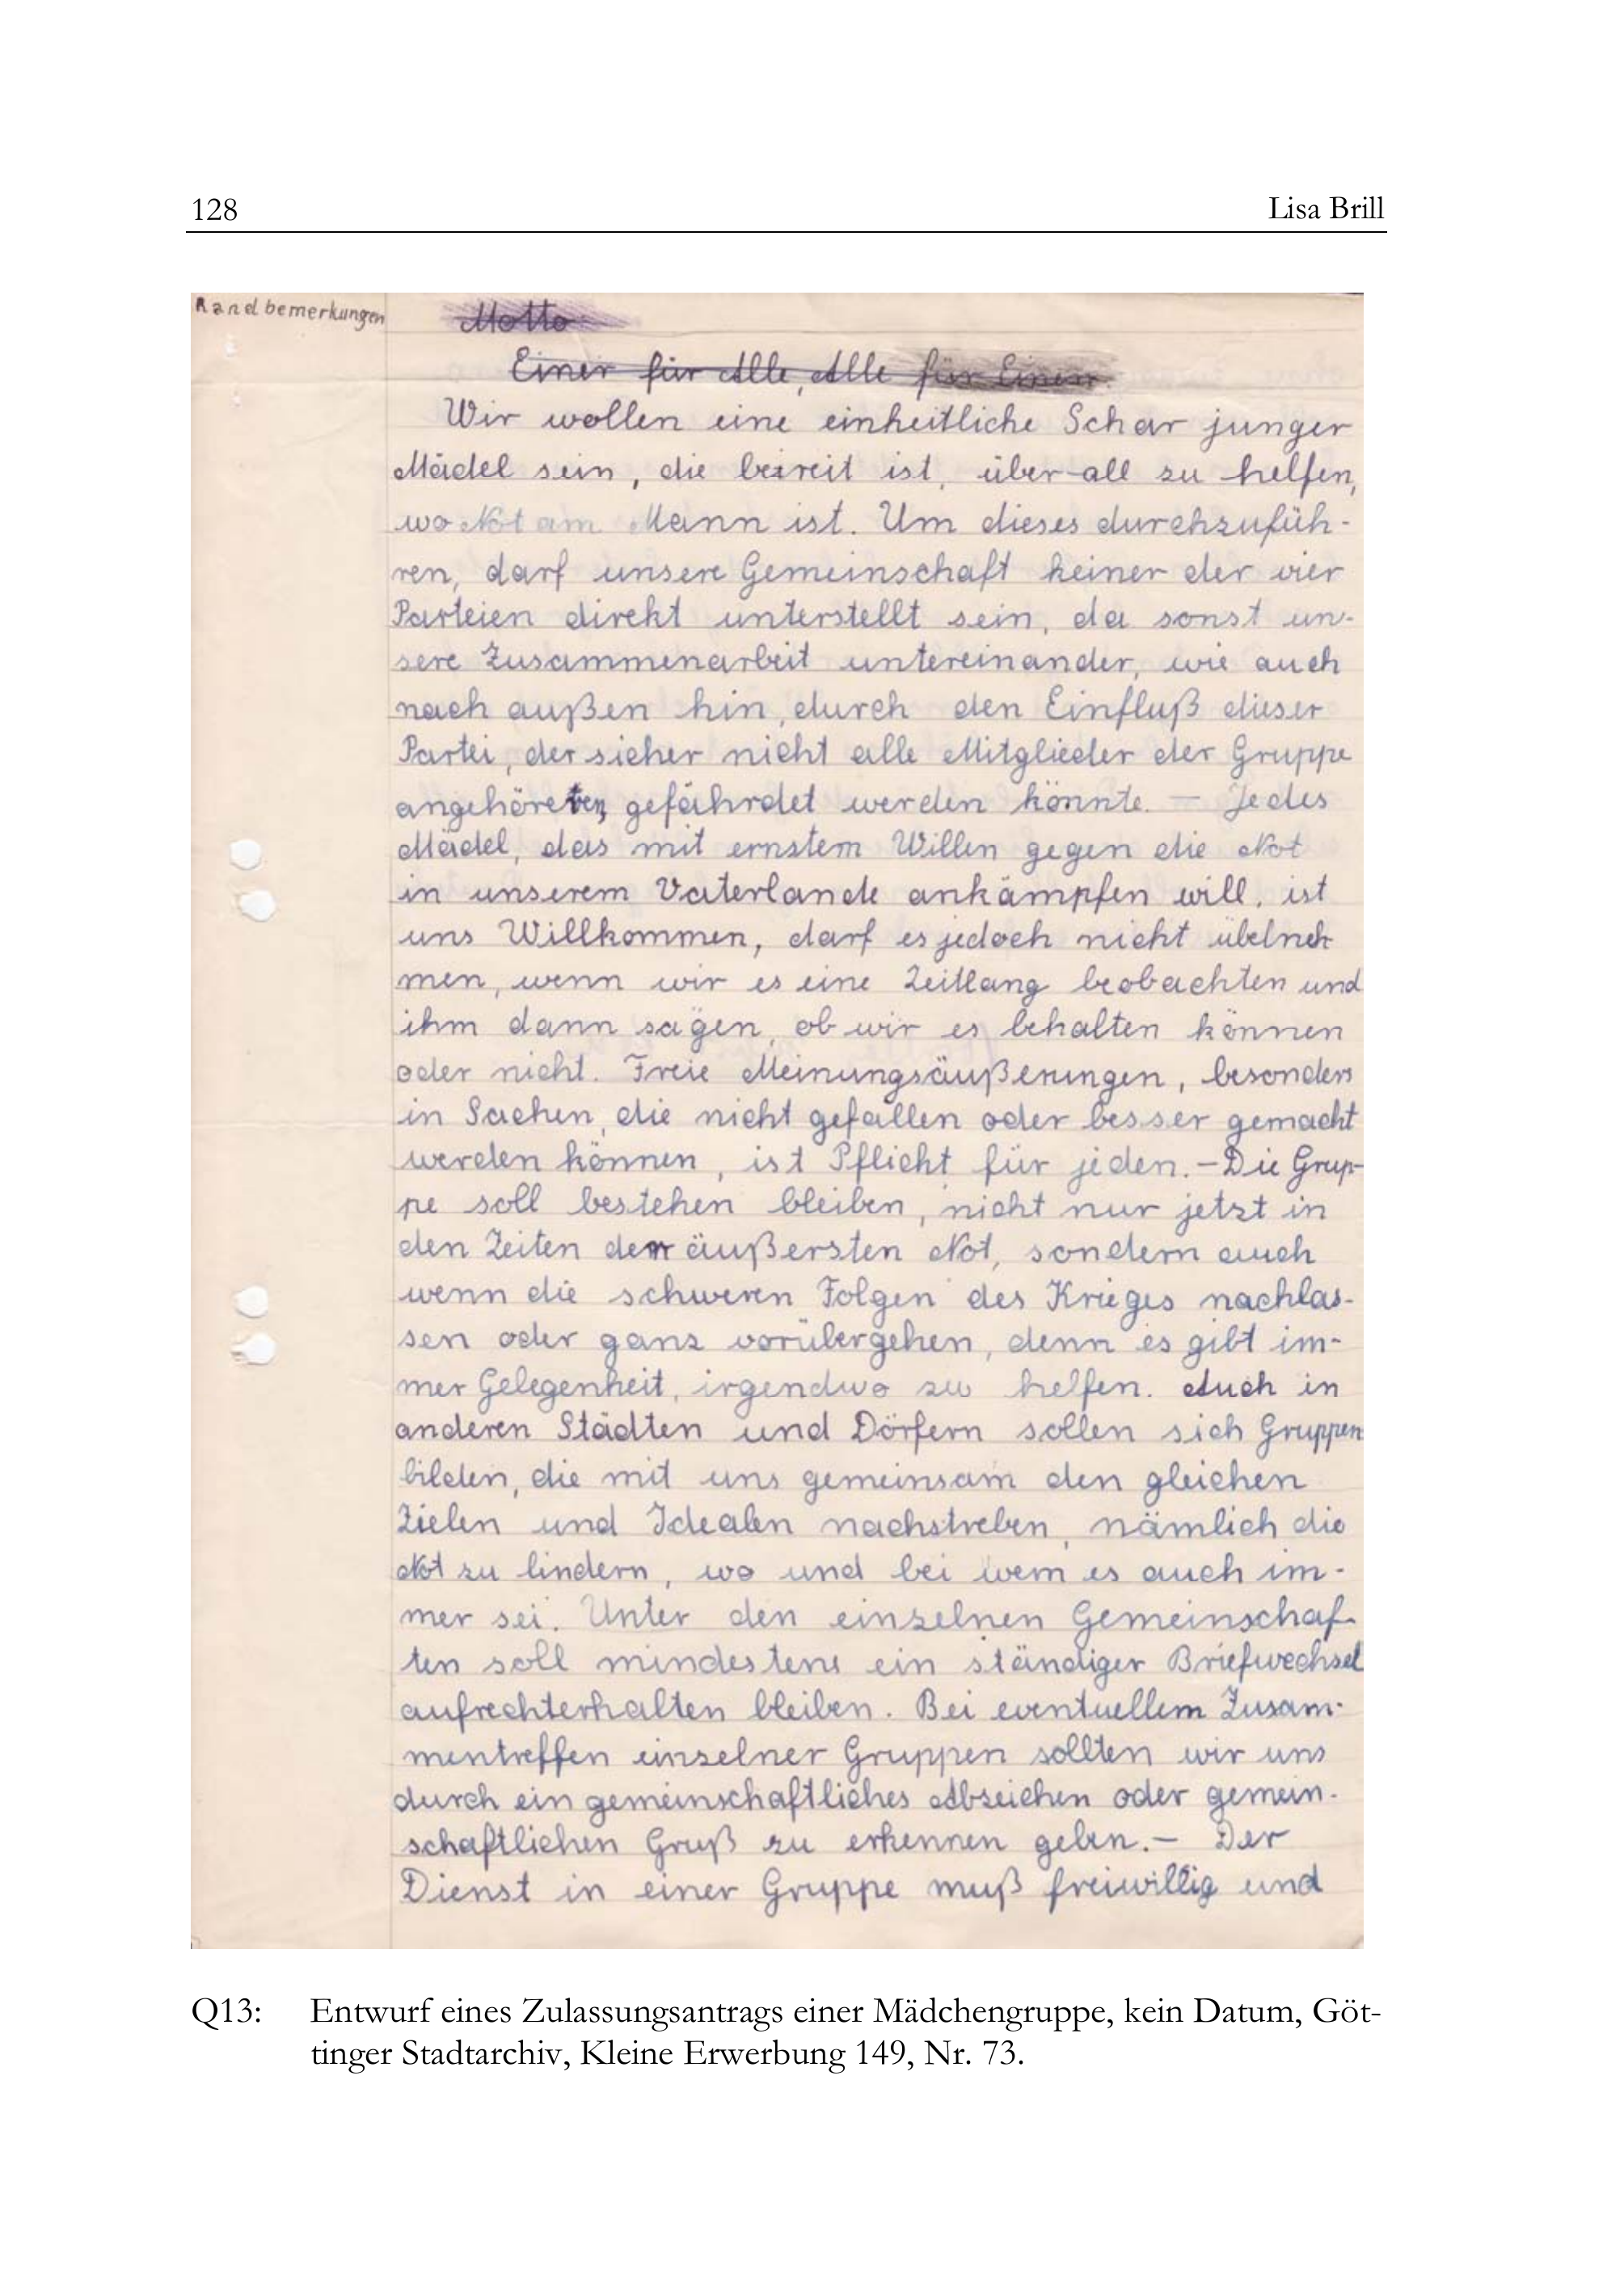 128
Lisa Brill
Randbemerkungen
Motto
Einer für Alle, Alle für Einen.
Wir wollen eine einheitliche Schar junger
Mädel sein, die bereit ist, über-all zu helfen,
wo Not am Mann ist. Um dieses durchzufüh-
ren, darf unsere Gemeinschaft keiner der vier
Parteien direkt unterstellt sein, da sonst un-
sere Zusammenarbeit untereinander, wie auch
nach außen hin, durch den Einfluß dieser
Partei, der sicher nicht alle Mitglieder der Gruppe
gefährdet werden könnte. — Jedes
Mädel, das mit ernstem Willen gegen die Not
in unserem Vaterlande ankämpfen will, ist
uns Willkommen, darf es jedoch nicht übelneh
men, wenn wir es eine Zeitlang beobachten und
ihm dann sagen, ob wir es behalten können
oder nicht. Freie Meinungsäußerungen, besonders
in Sachen, die nicht gefallen oder besser gemacht
werden können, ist Pflicht für jeden. – Die Grup-
pe soll bestehen bleiben, nicht nur jetzt in
den Zeiten der äußersten Not, sondern auch
wenn die schweren Folgen des Krieges nachlas-
sen oder ganz vorübergehen, denn es gibt im-
mer Gelegenheit, irgendwo zu helfen. Auch in
anderen Städten und Dörfern sollen sich Gruppen
bilden, die mit uns gemeinsam den gleichen
Zielen und Idealen nachstreben, nämlich die
Not zu lindern, wo und bei wem es auch im-
mer sei. Unter den einzelnen Gemeinschaf-
ten soll mindestens ein ständiger Briefwechsel
aufrechterhalten bleiben. Bei eventuellem Zusam-
mentreffen einzelner Gruppen sollten wir uns
durch ein gemeinschaftliches Abzeichen oder gemein-
schaftlichen Gruß zu erkennen geben. – Der
Dienst in einer Gruppe muß freiwillig und
Q13: Entwurf eines Zulassungsantrags einer Mädchengruppe, kein Datum, Göt-
tinger Stadtarchiv, Kleine Erwerbung 149, Nr. 73.